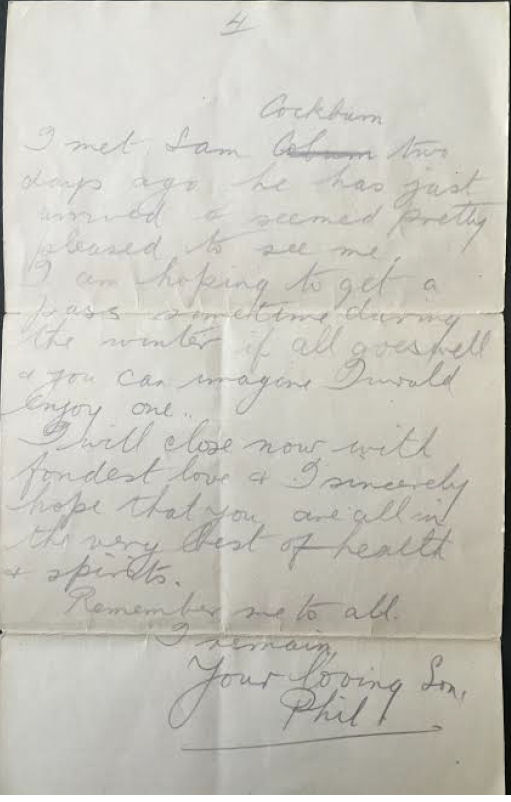 4
Cockburn
I met Sam Coburn two
days ago he has just
arrived & seemed pretty
pleased to see me.
I am hoping to get a
pass sometime during
the winter if all goes well
& you can imagine I would
enjoy one.
I will close now with
fondest love & I sincerely
hope that you are all in
the very best of health
& spirits.
Remember me to all.
I remain
Your loving Son,
Phil